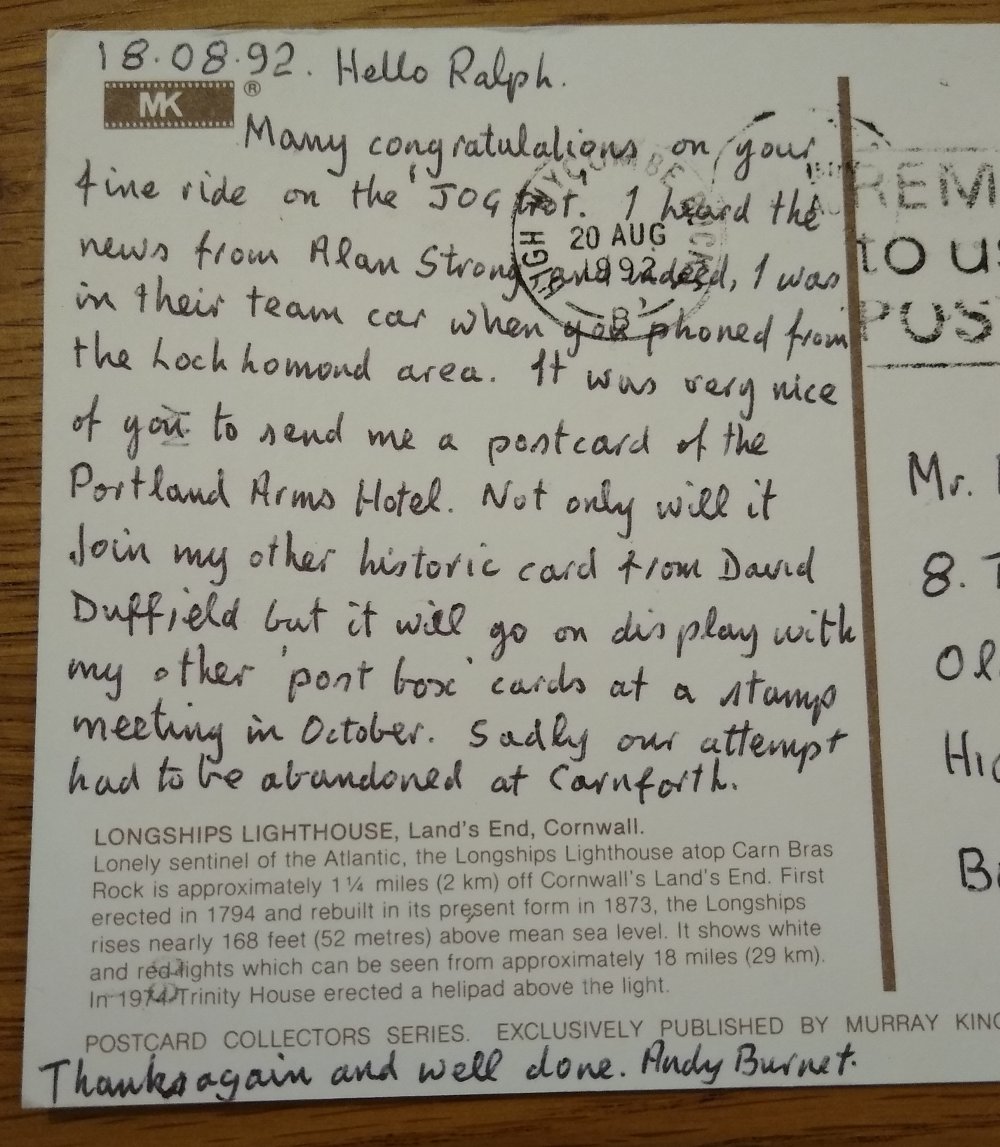 18.08.92. Hello Ralph.
MK ®
Many congratulations on your
fine ride on the 'JOG trot'. I heard the
news from Alan Strong and indeed, I was
in their team car when you phoned from
the Loch Lomond area. It was very nice
of you to send me a postcard of the
Portland Arms Hotel. Not only will it
Join my other historic card from David
Duffield but it will go on display with
my other 'post box' cards at a stamp
meeting in October. Sadly our attempt
had to be abandoned at Carnforth.
LONGSHIPS LIGHTHOUSE, Land's End, Cornwall.
Lonely sentinel of the Atlantic, the Longships Lighthouse atop Carn Bras
Rock is approximately 1¼ miles (2 km) off Cornwall's Land's End. First
erected in 1794 and rebuilt in its present form in 1873, the Longships
rises nearly 168 feet (52 metres) above mean sea level. It shows white
and red lights which can be seen from approximately 18 miles (29 km).
In 1974 Trinity House erected a helipad above the light.
POSTCARD COLLECTORS SERIES. EXCLUSIVELY PUBLISHED BY MURRAY KING
Thanks again and well done. Andy Burnet.
HIGH WYCOMBE BUCKS
20 AUG
1992
B
REM
to us
POS
Mr.
8. T
Ol
Hig
B